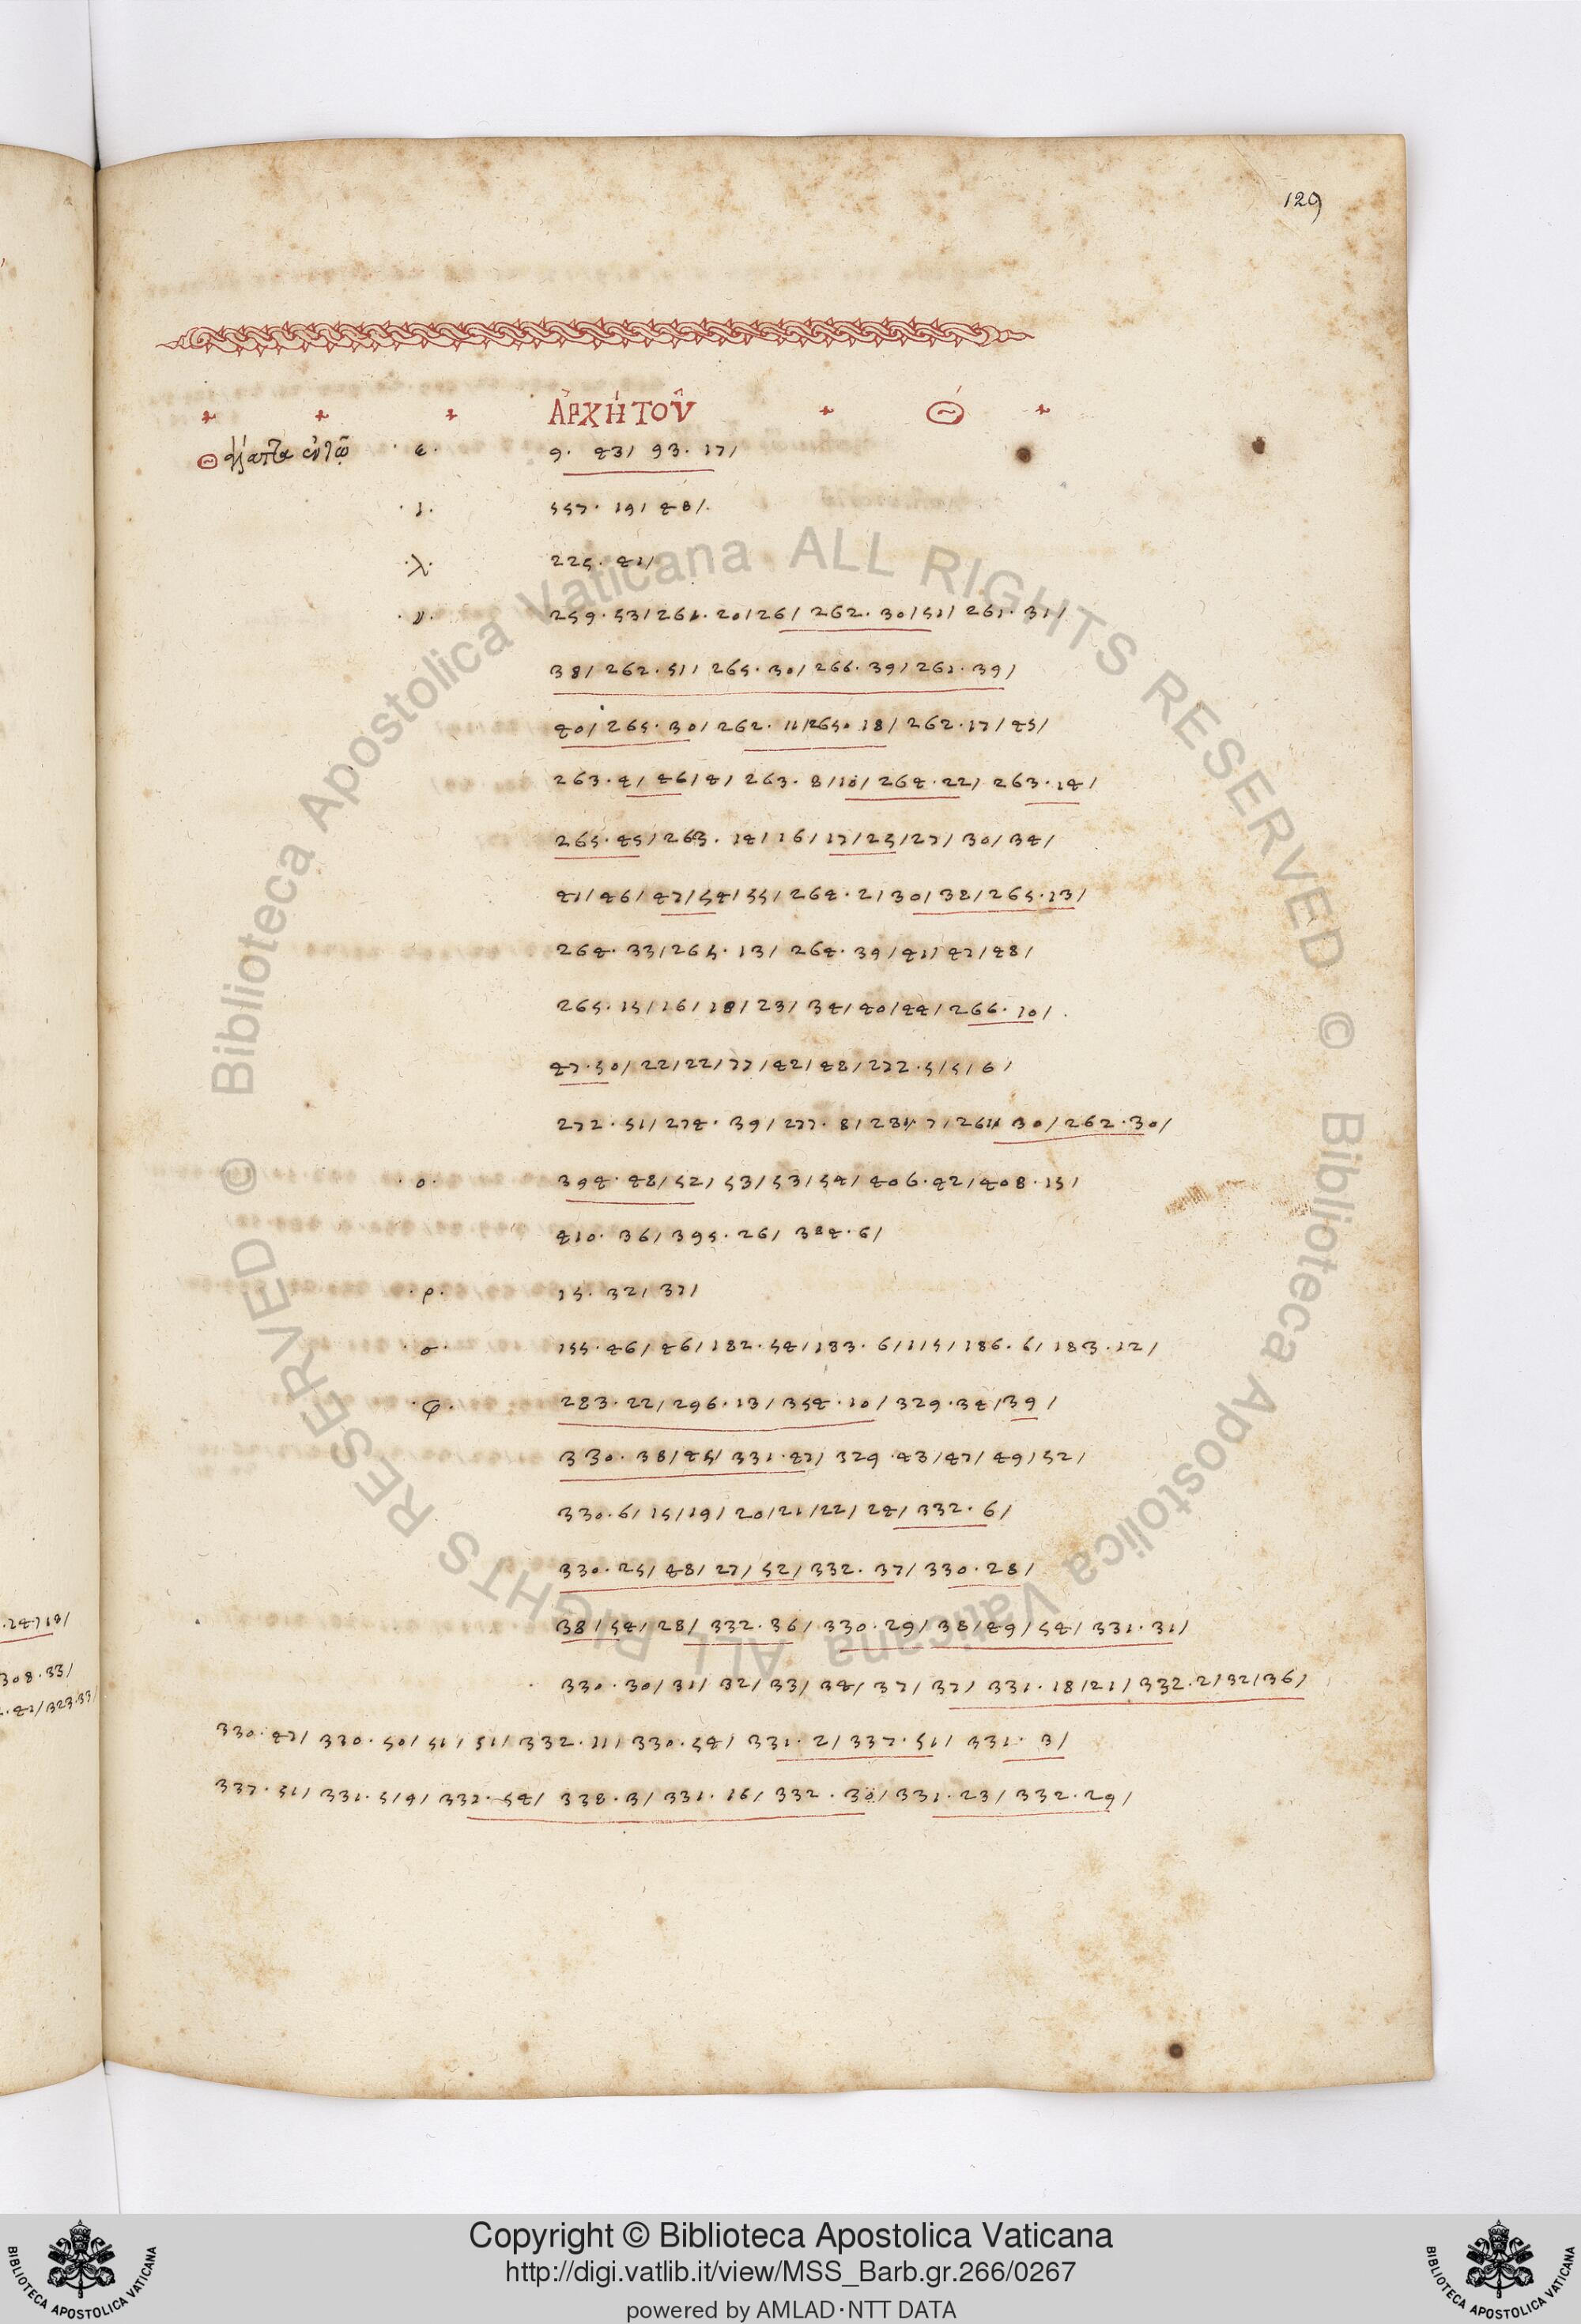 129
+ + + ἈΡΧΉ ΤΟΥ͂ + Θ +
ε · 9 · 43 / 93 · 17 /
· ι · 557 · 19 / 48 / ·
· λ · 225 · 41 /
· ν · 259 · 53 / 261 · 20 / 26 / 262 · 30 / 51 / 261 · 31 /
38 / 262 · 51 / 265 · 30 / 266 · 39 / 261 · 39 /
40 / 265 · 30 / 262 · 11 / 265 · 18 / 262 · 17 / 45 /
263 · 4 / 46 / 4 / 263 · 8 / 10 / 264 · 22 / 263 · 14 /
265 · 45 / 263 · 14 / 16 / 17 / 25 / 27 / 30 / 34 /
41 / 46 / 47 / 54 / 55 / 264 · 2 / 30 / 38 / 265 · 13 /
264 · 33 / 265 · 13 / 264 · 39 / 41 / 47 / 48 /
265 · 15 / 16 / 18 / 23 / 34 / 40 / 44 / 266 · 10 / ·
47 · 50 / 22 / 22 / 77 / 42 / 48 / 272 · 5 / 5 / 6 /
272 · 51 / 274 · 39 / 277 · 8 / 7 / 30 / 262 · 30 /
· ο · 394 · 48 / 52 / 53 / 53 / 54 / 406 · 42 / 408 · 15 /
410 · 36 / 395 · 26 / 384 · 6 /
· ρ · 15 · 32 / 37 /
· σ · 155 · 46 / 46 / 182 · 54 / 183 · 6 / 115 / 186 · 6 / 183 · 12 /
· φ · 283 · 22 / 296 · 13 / 354 · 10 / 329 · 34 / 39 /
330 · 38 / 45 / 331 · 47 / 329 · 43 / 47 / 49 / 52 /
330 · 6 / 15 / 19 / 20 / 21 / 22 / 24 / 332 · 6 /
330 · 25 / 48 / 27 / 52 / 332 · 37 / 330 · 28 /
38 / 54 / 28 / 332 · 36 / 330 · 29 / 38 / 49 / 54 / 331 · 31 /
330 · 30 / 31 / 32 / 33 / 34 / 37 / 37 / 331 · 18 / 21 / 332 · 2 / 32 / 36 /
330 · 47 / 330 · 50 / 51 / 51 / 332 · 11 / 330 · 54 / 331 · 2 / 337 · 51 / 331 · 3 /
337 · 51 / 331 · 5 / 9 / 332 · 54 / 338 · 3 / 331 · 16 / 332 · 30 / 331 · 23 / 332 · 29 /
308 · 33 /
© Biblioteca Apostolica Vaticana ALL RIGHTS RESERVED © Biblioteca Apostolica Vaticana ALL RIGHTS RESERVED
Copyright © Biblioteca Apostolica Vaticana
http://digi.vatlib.it/view/MSS_Barb.gr.266/0267
powered by AMLAD·NTT DATA
BIBLIOTECA APOSTOLICA VATICANA
BIBLIOTECA APOSTOLICA VATICANA